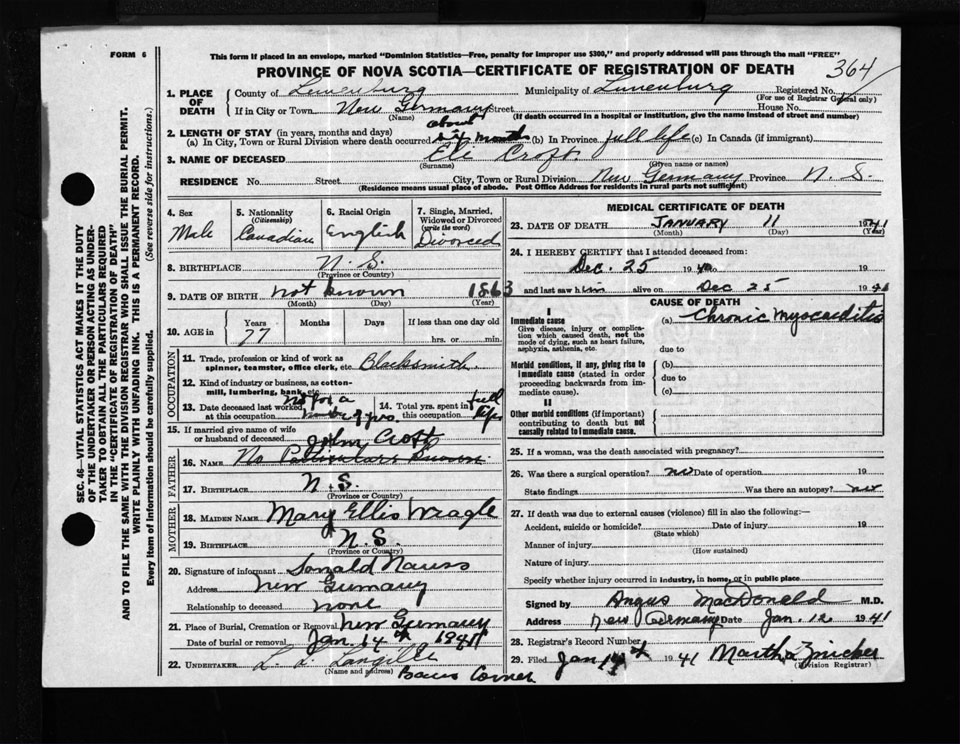 FORM 6
This form if placed in an envelope, marked "Dominion Statistics—Free, penalty for improper use $300," and properly addressed will pass through the mail "FREE"
PROVINCE OF NOVA SCOTIA—CERTIFICATE OF REGISTRATION OF DEATH
364
1. PLACE OF DEATH
County of Lunenburg Municipality of Lunenburg Registered No.
(For use of Registrar General only)
If in City or Town New Germany Street House No.
(Name) (If death occurred in a hospital or institution, give the name instead of street and number)
2. LENGTH OF STAY (in years, months and days) about
(a) In City, Town or Rural Division where death occurred six months (b) In Province full life (c) In Canada (if immigrant)
3. NAME OF DECEASED Eli Croft
(Surname) (Given name or names)
RESIDENCE No. Street City, Town or Rural Division New Germany Province N. S.
(Residence means usual place of abode. Post Office Address for residents in rural parts not sufficient)
4. Sex
Male
5. Nationality
(Citizenship)
Canadian
6. Racial Origin
English
7. Single, Married, Widowed or Divorced
(write the word)
Divorced
8. BIRTHPLACE N. S.
(Province or Country)
9. DATE OF BIRTH not known 1863
(Month) (Day) (Year)
10. AGE in
Years Months Days If less than one day old
77 hrs. or min.
OCCUPATION
11. Trade, profession or kind of work as spinner, teamster, office clerk, etc. Blacksmith
12. Kind of industry or business, as cotton-mill, lumbering, bank, etc.
13. Date deceased last worked at this occupation not for a number of yrs.
14. Total yrs. spent in this occupation full life
15. If married give name of wife or husband of deceased
FATHER
John Croft
16. NAME No Particulars Known
17. BIRTHPLACE N. S.
(Province or Country)
MOTHER
18. MAIDEN NAME Mary Ellis Wragle
19. BIRTHPLACE N. S.
(Province or Country)
20. Signature of informant Donald Nauss
Address New Germany
Relationship to deceased none
21. Place of Burial, Cremation or Removal New Germany
Date of burial or removal Jan. 14th 1941
22. UNDERTAKER L. L. Langille
(Name and address) Corner
MEDICAL CERTIFICATE OF DEATH
23. DATE OF DEATH JANUARY 11 1941
(Month) (Day) (Year)
24. I HEREBY CERTIFY that I attended deceased from:
Dec. 25 1940
and last saw him alive on Dec 25 1940
CAUSE OF DEATH
I
Immediate cause
Give disease, injury or complication which caused death, not the mode of dying, such as heart failure, asphyxia, asthenia, etc.
(a) Chronic Myocarditis
due to
Morbid conditions, if any, giving rise to immediate cause (stated in order proceeding backwards from immediate cause).
(b)
due to
(c)
II
Other morbid conditions (if important) contributing to death but not causally related to immediate cause.
25. If a woman, was the death associated with pregnancy?
26. Was there a surgical operation? no Date of operation 19
State findings Was there an autopsy? no
27. If death was due to external causes (violence) fill in also the following:—
Accident, suicide or homicide? Date of injury 19
(State which)
Manner of injury
(How sustained)
Nature of injury
Specify whether injury occurred in industry, in home, or in public place
Signed by Angus MacDonald M.D.
Address New Germany Date Jan. 12 1941
28. Registrar's Record Number
29. Filed Jan 14th 1941 Martha Zwicker
(Division Registrar)
SEC. 46—VITAL STATISTICS ACT MAKES IT THE DUTY
OF THE UNDERTAKER OR PERSON ACTING AS UNDER-
TAKER TO OBTAIN ALL THE PARTICULARS REQUIRED
IN THE "CERTIFICATE OF REGISTRATION OF DEATH"
AND TO FILE THE SAME WITH THE DIVISION REGISTRAR WHO SHALL ISSUE THE BURIAL PERMIT.
WRITE PLAINLY WITH UNFADING INK. THIS IS A PERMANENT RECORD.
Every item of information should be carefully supplied. (See reverse side for instructions.)